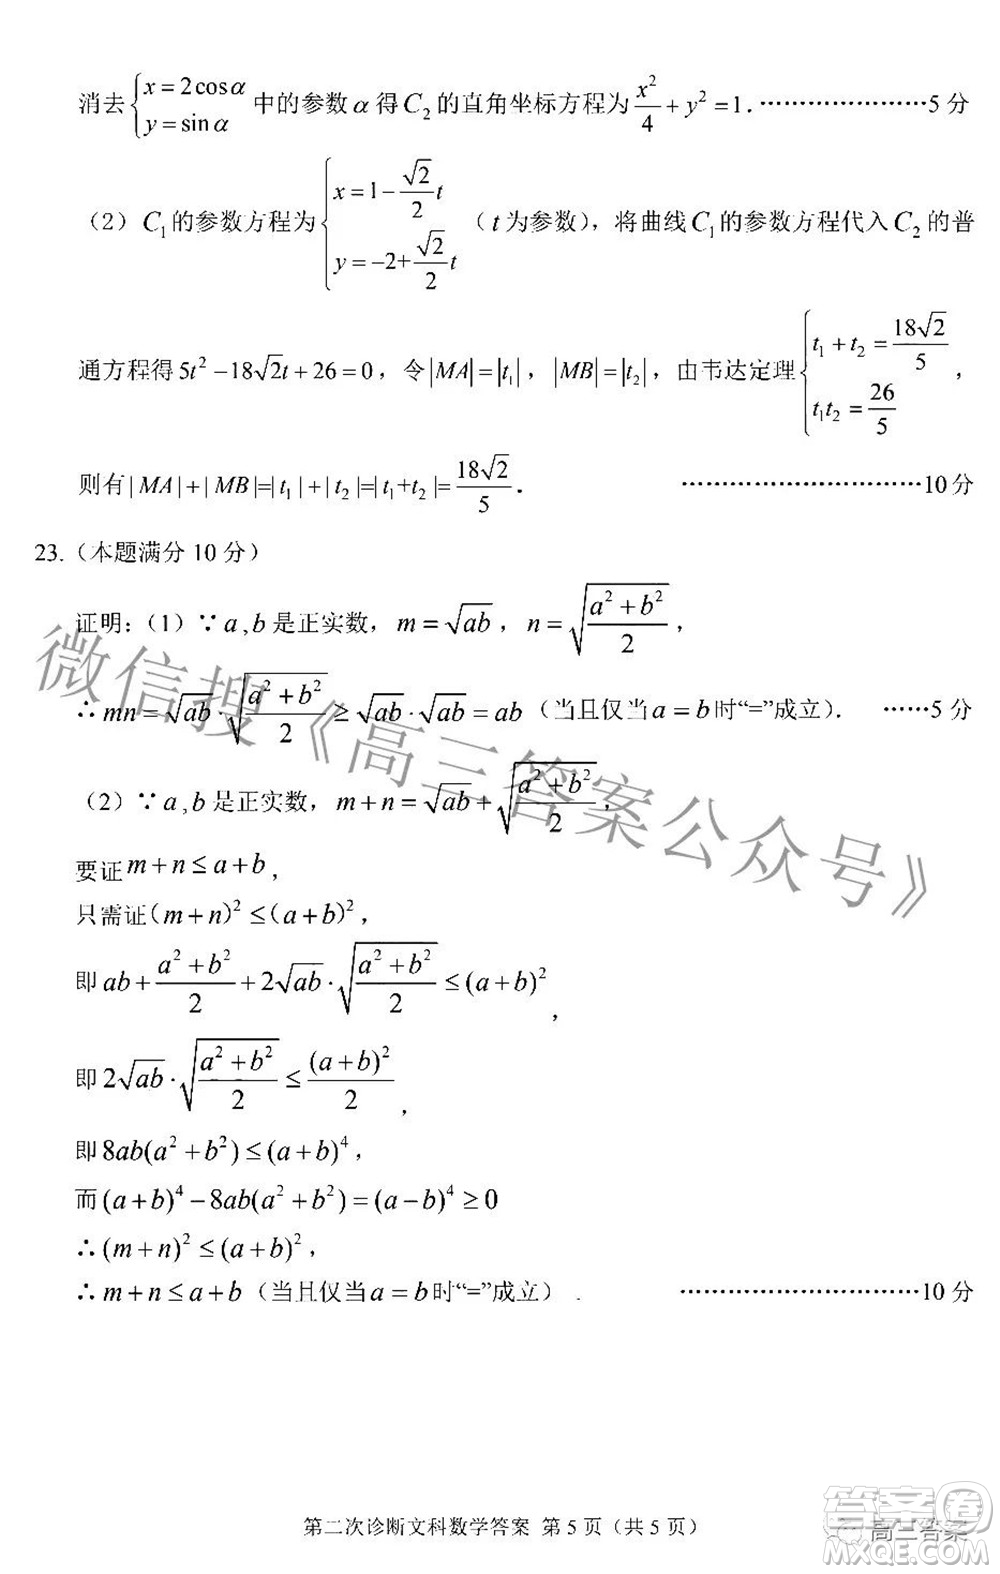 消去{x=2cosα y=sinα 中的参数α得C₂的直角坐标方程为x²/4+y²=1.………………5分
(2) C₁的参数方程为{x=1-(√2/2)t y=-2+(√2/2)t (t为参数),将曲线C₁的参数方程代入C₂的普
通方程得5t²-18√2t+26=0,令|MA|=|t₁|,|MB|=|t₂|,由韦达定理{t₁+t₂=18√2/5 t₁t₂=26/5,
则有|MA|+|MB|=|t₁|+|t₂|=|t₁+t₂|=18√2/5. …………………………10分
23.(本题满分10分)
证明:(1)∵a,b是正实数,m=√ab,n=√((a²+b²)/2),
∴mn=√ab·√((a²+b²)/2)≥√ab·√ab=ab(当且仅当a=b时“=”成立). ……5分
(2)∵a,b是正实数,m+n=√ab+√((a²+b²)/2),
要证m+n≤a+b,
只需证(m+n)²≤(a+b)²,
即ab+(a²+b²)/2+2√ab·√((a²+b²)/2)≤(a+b)²,
即2√ab·√((a²+b²)/2)≤(a+b)²/2,
即8ab(a²+b²)≤(a+b)⁴,
而(a+b)⁴-8ab(a²+b²)=(a-b)⁴≥0
∴(m+n)²≤(a+b)²,
∴m+n≤a+b(当且仅当a=b时“=”成立). …………………………10分
微信搜《高三答案公众号》
第二次诊断文科数学答案 第5页(共5页)
答案圈
高三答案
MXQE.COM